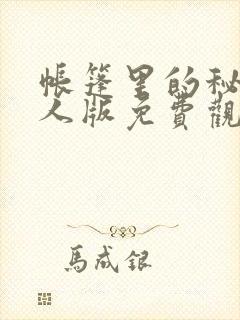 帳篷里的秘
人版免費觀
馬成銀